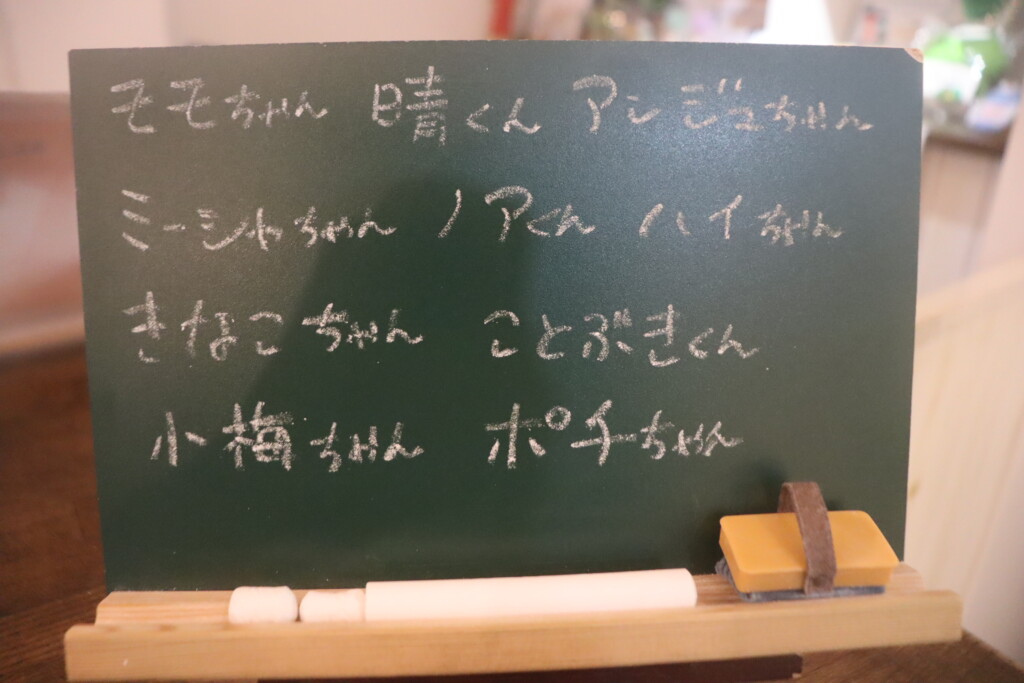 モモちゃん 晴くん アンジュちゃん
ミーシャちゃん ノアくん ハイちゃん
きなこちゃん ことぶきくん
小梅ちゃん ポチちゃん